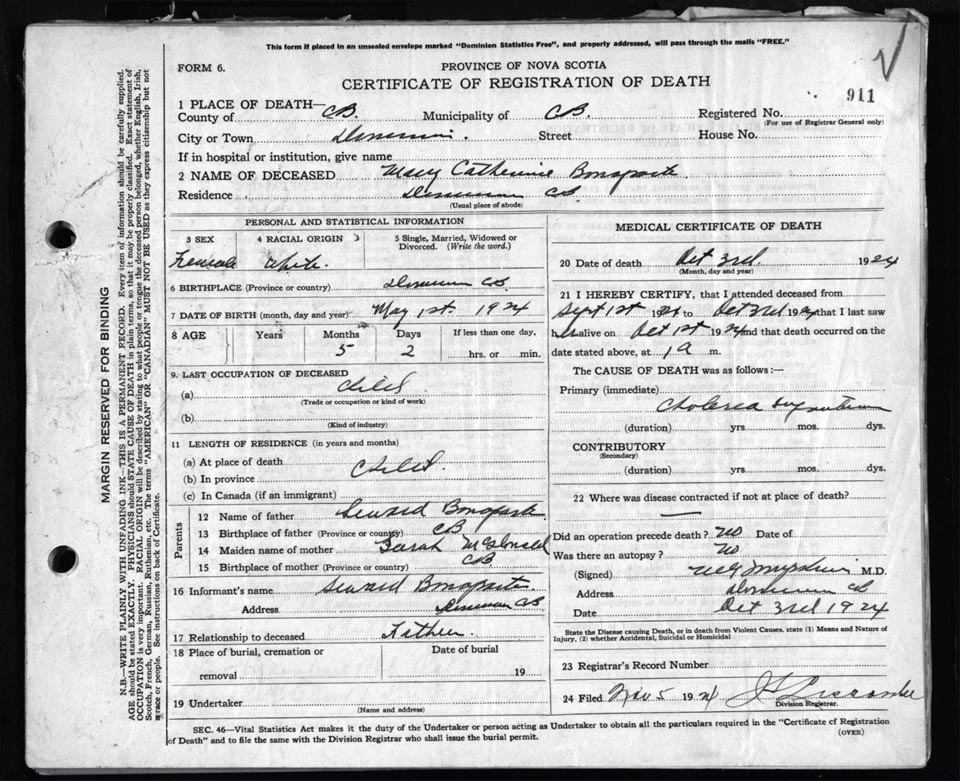 This form if placed in an unsealed envelope marked "Dominion Statistics Free", and properly addressed, will pass through the mails "FREE."
FORM 6.
PROVINCE OF NOVA SCOTIA
CERTIFICATE OF REGISTRATION OF DEATH
911
1 PLACE OF DEATH—
County of CB. Municipality of CB. Registered No.
(For use of Registrar General only)
City or Town Dominion. Street House No.
If in hospital or institution, give name
2 NAME OF DECEASED Mary Catherine Bonaparte
Residence Dominion CB
(Usual place of abode)
PERSONAL AND STATISTICAL INFORMATION
3 SEX 4 RACIAL ORIGIN 5 Single, Married, Widowed or Divorced. (Write the word.)
Female White
6 BIRTHPLACE (Province or country) Dominion CB
7 DATE OF BIRTH (month, day and year) May 1st. 1924
8 AGE Years Months Days If less than one day,
5 2 hrs. or min.
9. LAST OCCUPATION OF DECEASED
(a) Child
(Trade or occupation or kind of work)
(b)
(Kind of industry)
11 LENGTH OF RESIDENCE (in years and months)
(a) At place of death
(b) In province Child
(c) In Canada (if an immigrant)
Parents
12 Name of father Seward Bonaparte
13 Birthplace of father (Province or country) CB
14 Maiden name of mother Sarah McDonald
15 Birthplace of mother (Province or country) CB
16 Informant's name Seward Bonaparte
Address Dominion CB
17 Relationship to deceased Father
18 Place of burial, cremation or removal Date of burial
19
19 Undertaker
(Name and address)
MEDICAL CERTIFICATE OF DEATH
20 Date of death Oct 3rd. 1924
(Month, day and year)
21 I HEREBY CERTIFY, that I attended deceased from
Sept 1st 1924 to Oct 3rd 1924 that I last saw
h alive on Oct 1st 1924 and that death occurred on
date stated above, at 1 a m.
The CAUSE OF DEATH was as follows:—
Primary (immediate)
Cholera
(duration) yrs. mos. dys.
CONTRIBUTORY
(Secondary)
(duration) yrs mos. dys.
22 Where was disease contracted if not at place of death?
Did an operation precede death? No Date of
Was there an autopsy? No
(Signed) M.D.
Address Dominion CB
Date Oct 3rd 1924
State the Disease causing Death, or in death from Violent Causes, state (1) Means and Nature of Injury, (2) whether Accidental, Suicidal or Homicidal
23 Registrar's Record Number
24 Filed Nov 5 1924 Liscombe
Division Registrar.
SEC. 46—Vital Statistics Act makes it the duty of the Undertaker or person acting as Undertaker to obtain all the particulars required in the "Certificate of Registration
of Death" and to file the same with the Division Registrar who shall issue the burial permit.
(OVER)
MARGIN RESERVED FOR BINDING
N.B.—WRITE PLAINLY WITH UNFADING INK—THIS IS A PERMANENT RECORD. Every item of information should be carefully supplied.
AGE should be stated EXACTLY. PHYSICIANS should STATE CAUSE OF DEATH in plain terms, so that it may be properly classified. Exact statement of
OCCUPATION is very important. RACIAL ORIGIN will be described by stating to what people or tongue the deceased person belonged, whether English, Irish,
Scotch, French, German, Russian, Ruthenian, etc. The terms "AMERICAN" OR "CANADIAN" MUST NOT BE USED as they express citizenship but not
race or people. See instructions on back of Certificate.